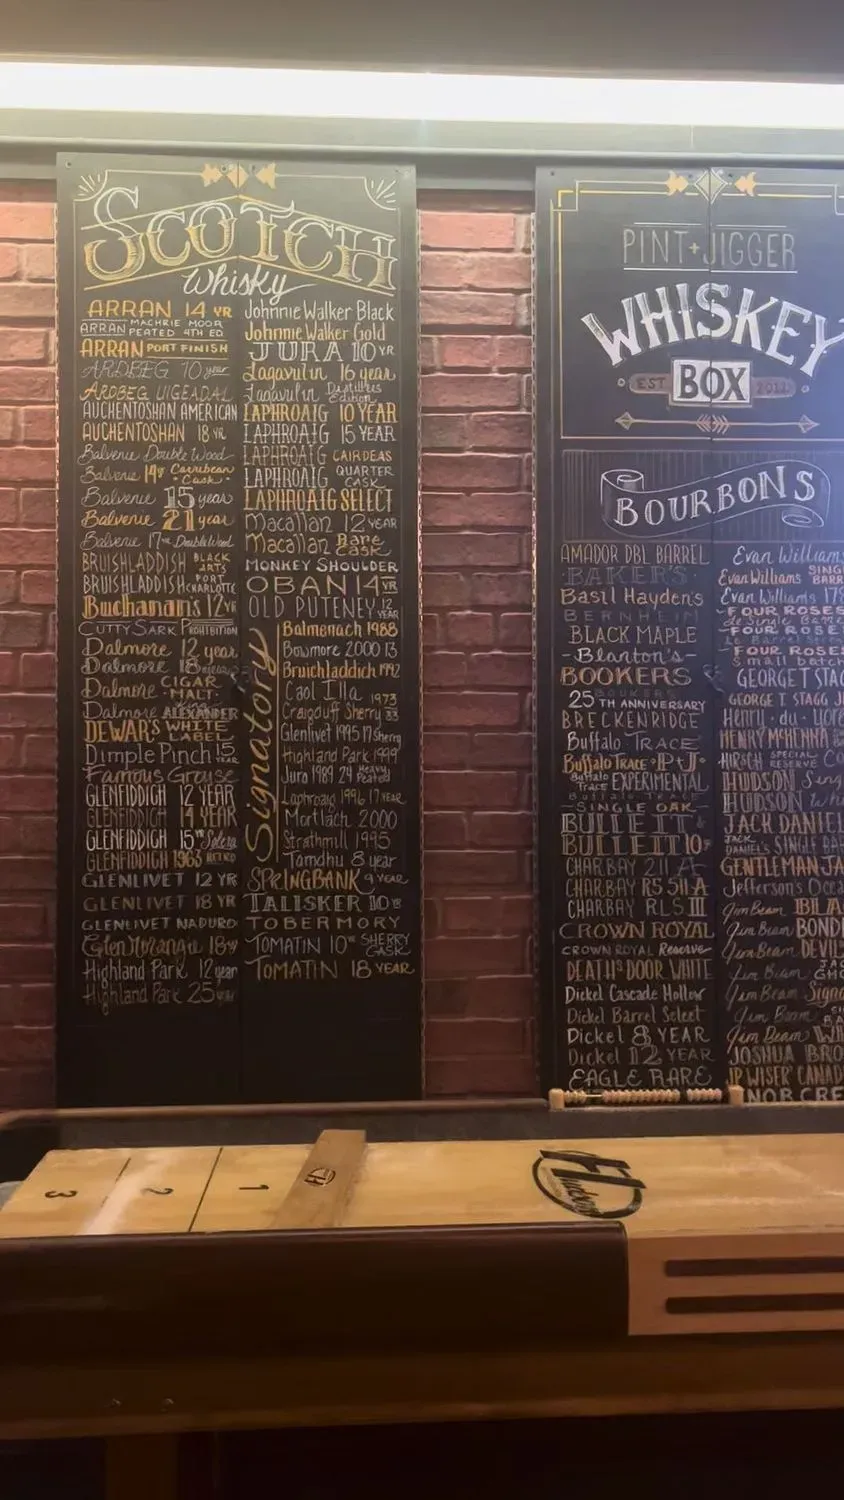 SCOTCH
Whisky
ARRAN 14 YR
ARRAN MACHRIE MOOR PEATED 4TH ED
ARRAN PORT FINISH
ARDBEG 10 year
ARDBEG UIGEADAL
AUCHENTOSHAN AMERICAN
AUCHENTOSHAN 18 YR
Balvenie Double Wood
Balvenie 14yr Carribean Cask
Balvenie 15 year
Balvenie 21 year
Balvenie 17yr DoubleWood
BRUISHLADDISH BLACK ARTS
BRUISHLADDISH PORT CHARLOTTE
Buchanan's 12YR
CUTTY SARK PROHIBITION
Dalmore 12 year
Dalmore 18 years
Dalmore CIGAR MALT
Dalmore King ALEXANDER
DEWAR'S WHITE LABEL
Dimple Pinch 15 YEAR
Famous Grouse
GLENFIDDICH 12 YEAR
GLENFIDDICH 14 YEAR
GLENFIDDICH 15YR Solera
GLENFIDDICH 1963
GLENLIVET 12 YR
GLENLIVET 18 YEAR
GLENLIVET NADURO
GlenMorangie 18yr
Highland Park 12year
Highland Park 25year
Johnnie Walker Black
Johnnie Walker Gold
JURA 10 YR
Lagavulin 16 year
Lagavulin Distillers Edition
LAPHROAIG 10 YEAR
LAPHROAIG 15 YEAR
LAPHROAIG CAIRDEAS
LAPHROAIG QUARTER CASK
LAPHROAIG SELECT
Macallan 12 YEAR
Macallan Rare Cask
MONKEY SHOULDER
OBAN 14 YR
OLD PUTENEY 12 YEAR
Signatory
Balmenach 1988
Bowmore 2000 13
Bruichladdich 1992
Caol Illa 1973
Craigduff Sherry 33
Glenlivet 1995 17 Sherry
Highland Park 1999
Jura 1989 24 Heavy Peated
Laphroaig 1996 17 YEAR
Mortlach 2000
Strathmill 1995
Tamdhu 8 year
SPRINGBANK 9 YEAR
TALISKER 10 YR
TOBERMORY
TOMATIN 10YR SHERRY CASK
TOMATIN 18 YEAR
PINT+JIGGER
WHISKEY
EST BOX 2011
BOURBONS
AMADOR DBL BARREL
BAKER'S
Basil Hayden's
BERNHEIM
BLACK MAPLE
-Blanton's-
BOOKERS
BOOKERS 25TH ANNIVERSARY
BRECKENRIDGE
Buffalo TRACE
Buffalo TRACE P+J
Buffalo Trace EXPERIMENTAL
Buffalo Trace
-SINGLE OAK-
BULLEIT
BULLEIT 10YR
CHARBAY 211 A
CHARBAY R5 511 A
CHARBAY RLS III
CROWN ROYAL
CROWN ROYAL Reserve
DEATH'S DOOR WHITE
Dickel Cascade Hollow
Dickel Barrel Select
Dickel 8 YEAR
Dickel 12 YEAR
EAGLE RARE
Evan Williams
Evan Williams SING BARR
Evan Williams 178
FOUR ROSES
de Single Barre
FOUR ROSE
FOUR ROSES
Small batch
GEORGE T STAG
GEORGE T STAGG J
Henry du yore
HENRY McHENNA
HIRSCH SPECIAL RESERVE CO
HUDSON Sing
HUDSON Wh
JACK DANIEL
JACK DANIEL'S SINGLE BA
GENTLEMAN JA
Jefferson's Ocea
Jim Beam BLA
Jim Beam BOND
Jim Beam DEVIL'
Jim Beam JAC GHO
Jim Beam Signa
Jim Beam
Jim Beam WH
JOSHUA BRO
JP WISER' CANAD
KNOB CRE
3 2 1